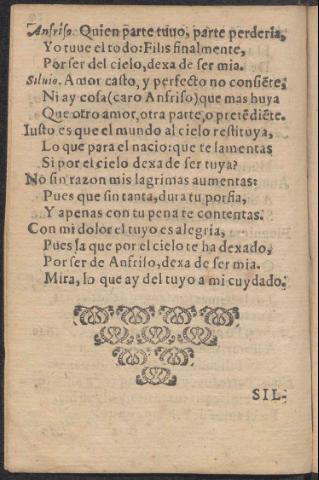 Anfriso. Quien parte tuuo, parte perderia,
Yo tuue el todo: Filis finalmente,
Por ser del cielo, dexa de ser mia.
Siluio. Amor casto, y perfecto no consiẽte,
Ni ay cosa (caro Anfriso) que mas huya
Que otro amor, otra parte, o pretẽdiẽte.
Iusto es que el mundo al cielo restituya,
Lo que para el nacio: que te lamentas
Si por el cielo dexa de ser tuya?
No sin razon mis lagrimas aumentas:
Pues que sin tanta, dura tu porfia,
Y apenas con tu pena te contentas.
Con mi dolor el tuyo es alegria,
Pues la que por el cielo te ha dexado,
Por ser de Anfriso, dexa de ser mia.
Mira, lo que ay del tuyo a mi cuydado.
SIL-